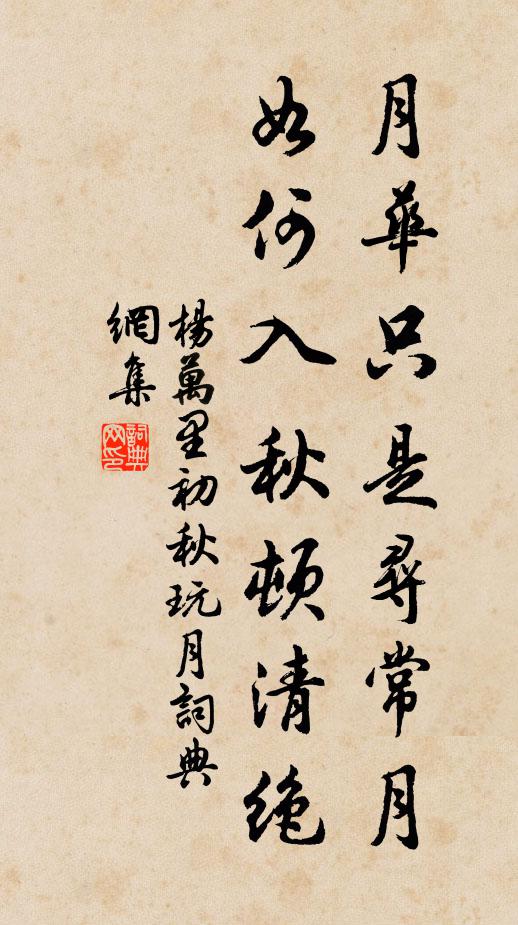 月華只是尋常月
如何入秋頓清絕
楊萬里初秋玩月詞典
網集
詞典
网印